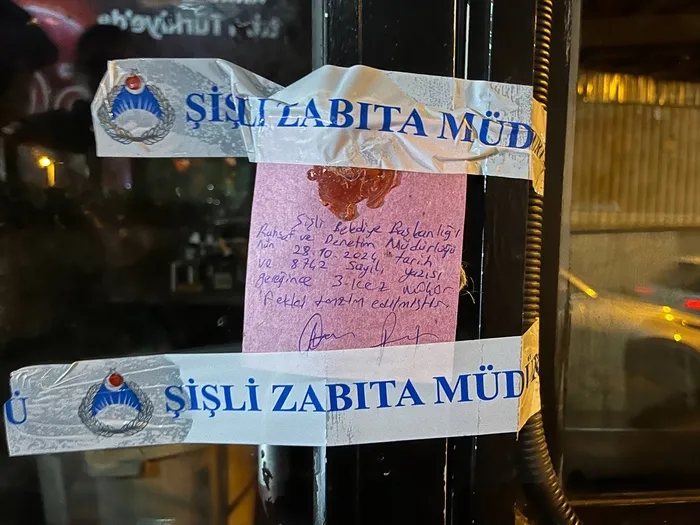 Türkiye'de
ŞİŞLİ ZABITA MÜD
Şişli Belediye Başkanlığı
Ruhsat ve Denetim Müdürlüğü
nün 28.10.2024 tarih
ve 8742 sayılı yazısı
gereğince 3. kez mühür
Fekler tanzim edilmiştir.
Ü
ŞİŞLİ ZABITA MÜDÜ